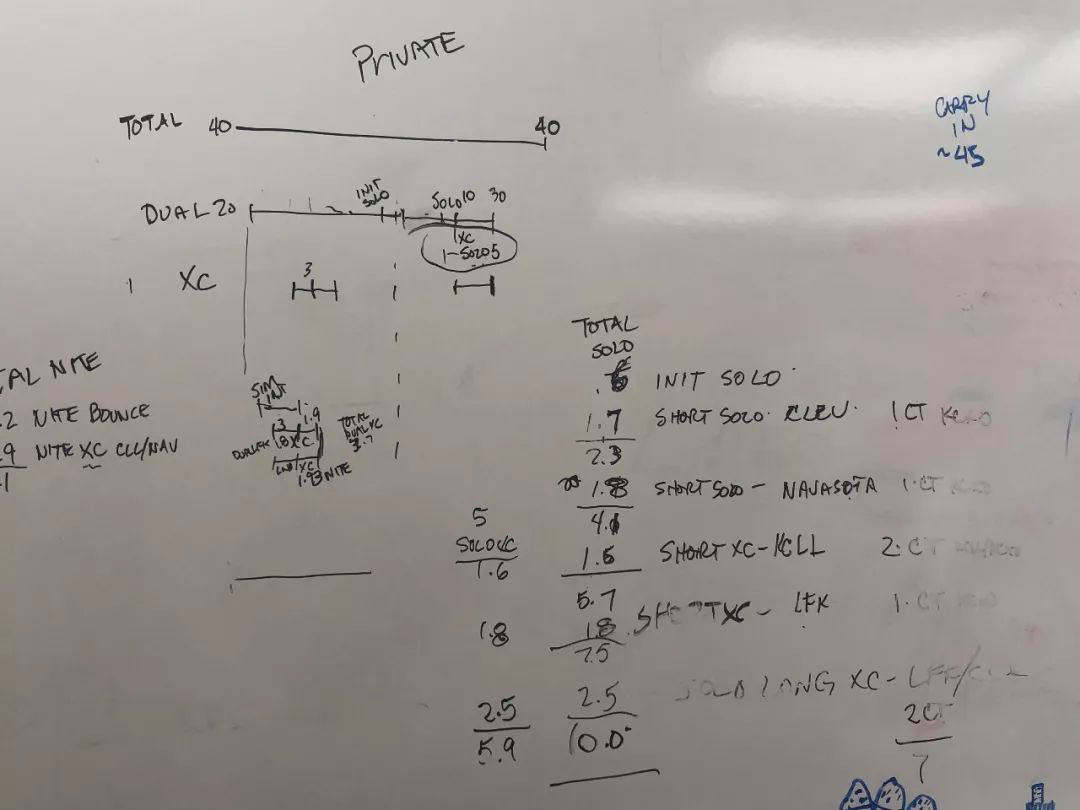 PRIVATE
TOTAL 40 40
CARRY
IN
~45
DUAL 20 INIT SOLO SOLO 10 30
XC
1-SOLO 5
1 XC 3
TAL NITE
.2 NITE BOUNCE
.9 NITE XC CLL/NAV
.1
SIM INT
3 1.9
XC
TOTAL DUAL XC
3.7
XC
NITE
TOTAL
SOLO
.6 INIT SOLO
1.7 SHORT SOLO CLEV. 1 CT
2.3
1.8 SHORT SOLO - NAVASOTA 1. CT
4.1
5
SOLO XC
1.6 1.6 SHORT XC - KCLL 2. CT
5.7
1.8 1.8 SHORT XC - LFK 1. CT
7.5
2.5 2.5 SOLO LONG XC - LFK/CLL
5.9 10.0 2 CT
7